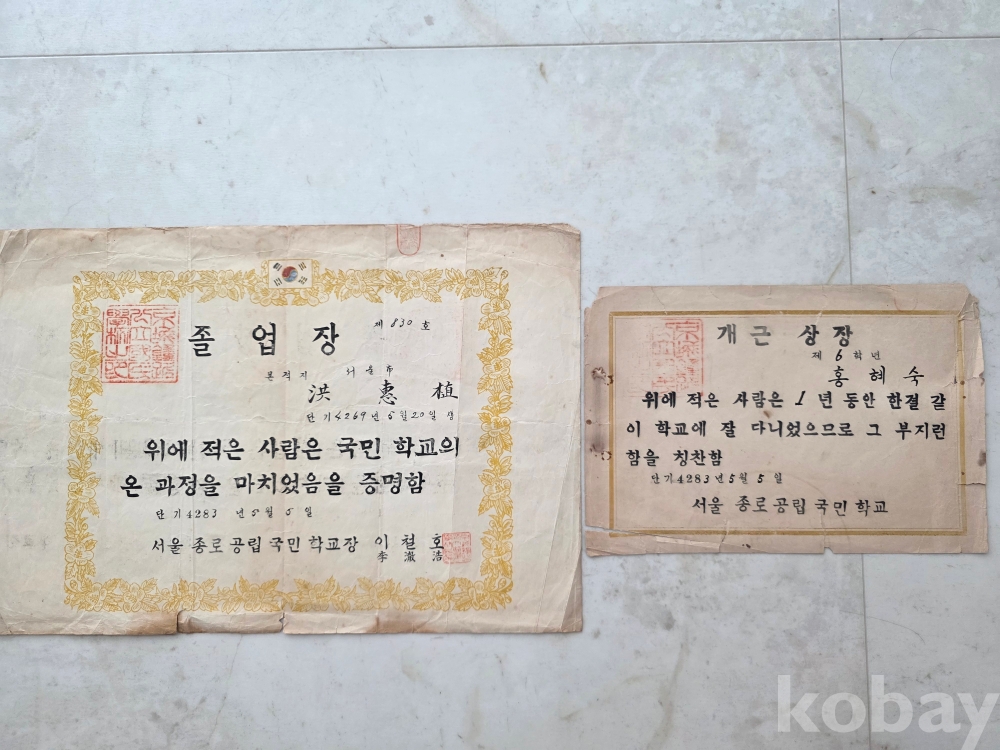 졸업장
제 830 호
본적지 서울市
洪惠植
단기4269년5월20일생
위에 적은 사람은 국민 학교의
온 과정을 마치었음을 증명함
단기4283년5월5일
서울 종로공립국민학교장 이철호
李澈浩
개근상장
제 6 학년
홍혜숙
위에 적은 사람은 1년 동안 한결 같
이 학교에 잘 다니었으므로 그 부지런
함을 칭찬함
단기4283년5월5일
서울 종로공립국민학교
kobay